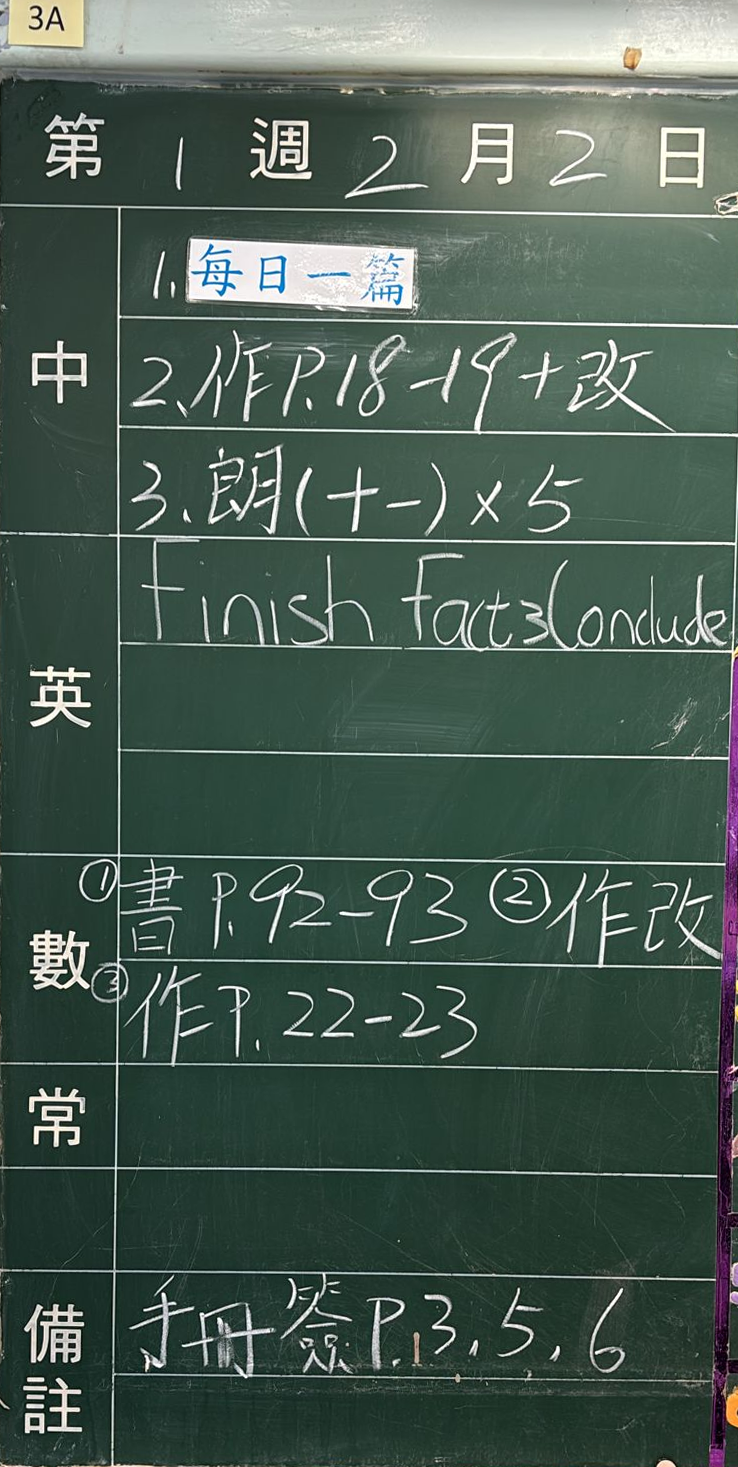 3A
第 1 週 2 月 2 日
中
1. 每日一篇
2. 作P.18-19+改
3. 朗(十一)×5
英
Finish Fact3Conclude
數
① 書 P.92-93 ② 作改
③ 作P.22-23
常
備註
手冊簽P.3, 5, 6